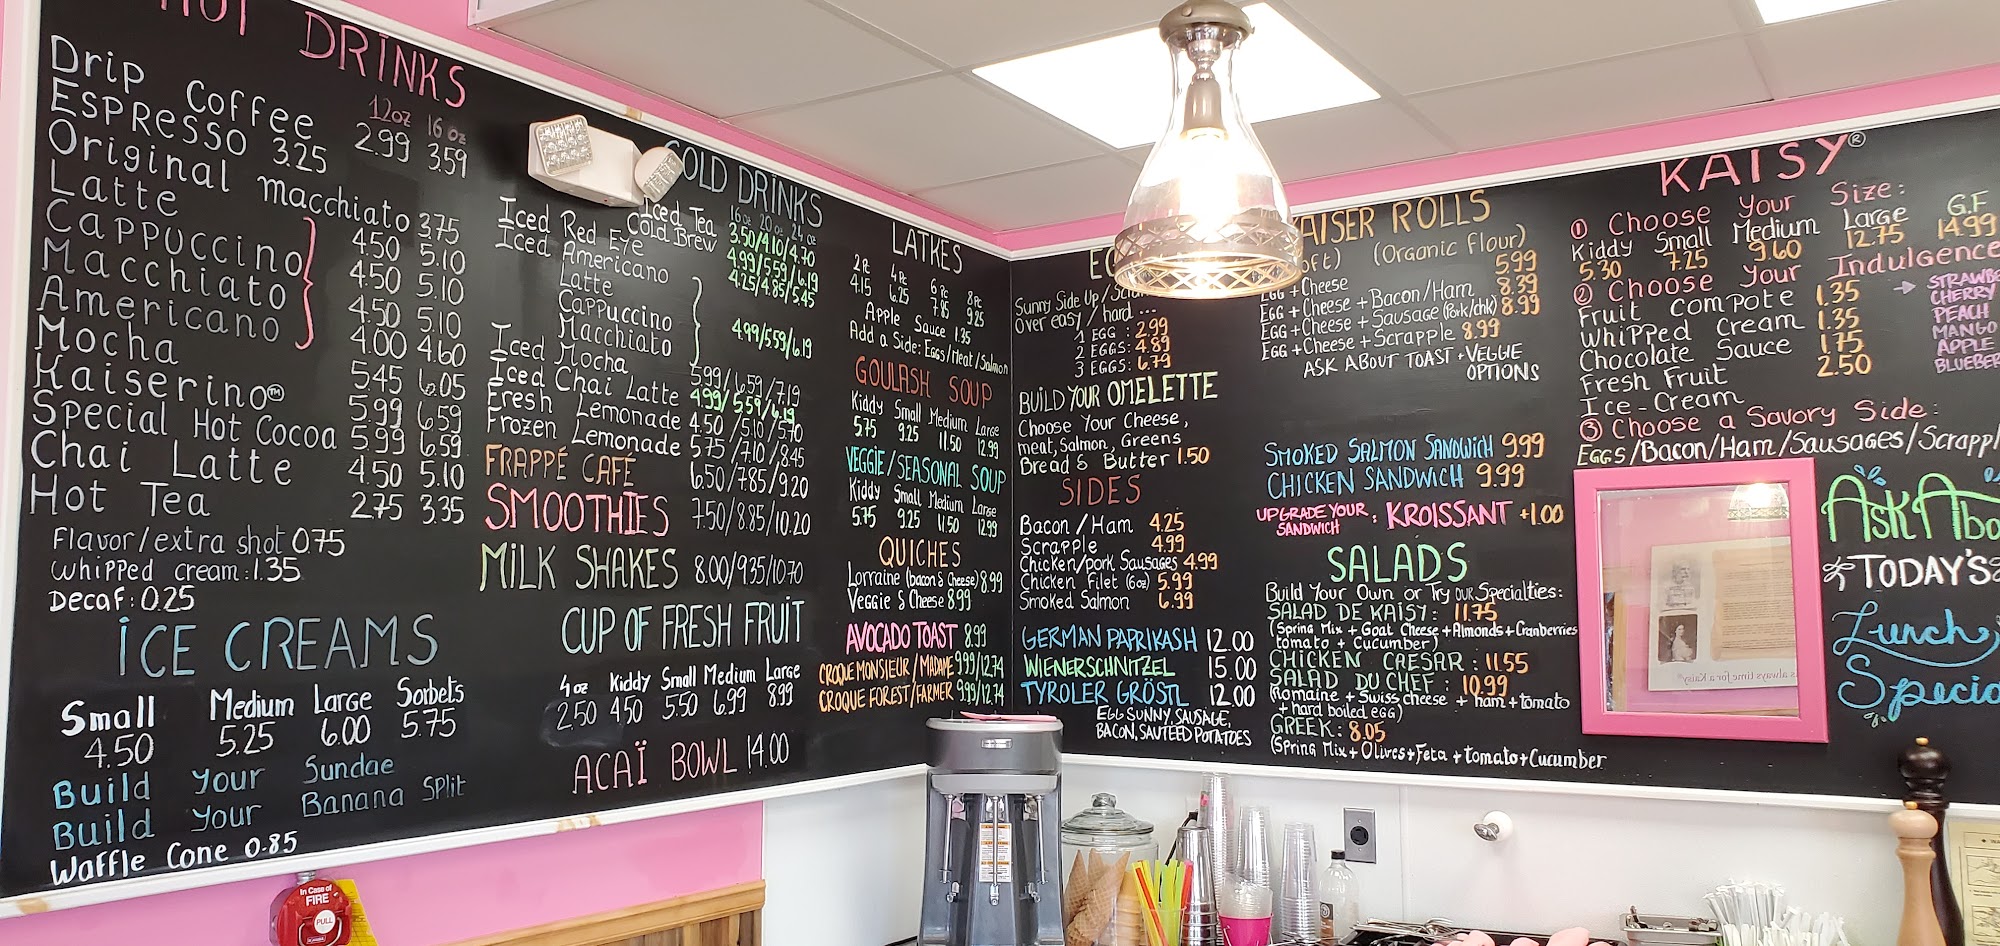 HOT DRINKS
12oz 16oz
Drip Coffee 2.99 3.59
ESPRESSO 3.25
Original macchiato 3.75
Latte 4.50 5.10
Cappuccino 4.50 5.10
Macchiato 4.50 5.10
Americano 4.00 4.60
Mocha 5.45 6.05
Kaiserino™ 5.99 6.59
Special Hot Cocoa 5.99 6.59
Chai Latte 4.50 5.10
Hot Tea 2.75 3.35
Flavor/extra shot 0.75
Whipped cream: 1.35
Decaf: 0.25
ICE CREAMS
Small Medium Large Sorbets
4.50 5.25 6.00 5.75
Build your Sundae
Build your Banana Split
Waffle Cone 0.85
COLD DRINKS
16oz 20oz 24oz
Iced Tea 3.50/4.10/4.70
Cold Brew 4.99/5.59/6.19
Iced Red Eye 4.25/4.85/5.45
Iced Americano
Latte
Cappuccino 4.99/5.59/6.19
Macchiato
Iced Mocha 5.99/6.59/7.19
Iced Chai Latte 4.99/5.59/6.19
Fresh Lemonade 4.50/5.10/5.70
Frozen Lemonade 5.75/7.10/8.45
FRAPPÉ CAFÉ 6.50/7.85/9.20
SMOOTHIES 7.50/8.85/10.20
MILK SHAKES 8.00/9.35/10.70
CUP OF FRESH FRUIT
4oz Kiddy Small Medium Large
2.50 4.50 5.50 6.99 8.99
ACAÏ BOWL 14.00
LATKES
2 Pc 4 Pc 6 Pc 8 Pc
4.15 6.25 7.85 9.25
Apple Sauce 1.35
Add a Side: Eggs/Meat/Salmon
GOULASH SOUP
Kiddy Small Medium Large
5.75 9.25 11.50 12.99
VEGGIE/SEASONAL SOUP
Kiddy Small Medium Large
5.75 9.25 11.50 12.99
QUICHES
Lorraine (bacon & Cheese) 8.99
Veggie & Cheese 8.99
AVOCADO TOAST 8.99
CROQUE MONSIEUR/MADAME 9.99/12.74
CROQUE FOREST/FARMER 9.99/12.74
Sunny Side Up/
Over easy/hard ...
1 EGG : 2.99
2 EGGS: 4.89
3 EGGS: 6.79
BUILD YOUR OMELETTE
Choose Your Cheese,
meat, Salmon, Greens
Bread & Butter 1.50
SIDES
Bacon/Ham 4.25
Scrapple 4.99
Chicken/pork Sausages 4.99
Chicken Filet (6oz) 5.99
Smoked Salmon 6.99
GERMAN PAPRIKASH 12.00
WIENERSCHNITZEL 15.00
TYROLER GRÖSTL 12.00
EGG SUNNY, SAUSAGE,
BACON, SAUTEED POTATOES
KAISER ROLLS
(Organic Flour)
Egg + Cheese 5.99
Egg + Cheese + Bacon/Ham 8.39
Egg + Cheese + Sausage (Pork/chk) 8.99
Egg + Cheese + Scrapple 8.99
ASK ABOUT TOAST + VEGGIE
OPTIONS
SMOKED SALMON SANDWICH 9.99
CHICKEN SANDWICH 9.99
UPGRADE YOUR SANDWICH : KROISSANT +1.00
SALADS
Build Your Own or Try our Specialties:
SALAD DE KAISY: 11.75
(Spring Mix + Goat Cheese + Almonds + Cranberries
tomato + Cucumber)
CHICKEN CAESAR: 11.55
SALAD DU CHEF: 10.99
(Romaine + Swiss cheese + ham + tomato
+ hard boiled egg)
GREEK: 8.05
(Spring Mix + Olives + Feta + tomato + Cucumber
KAISY®
① Choose Your Size:
Kiddy Small Medium Large G.F
5.30 7.25 9.60 12.75 14.99
② Choose Your Indulgence
Fruit Compote 1.35
Whipped Cream 1.35
Chocolate Sauce 1.75
Fresh Fruit 2.50
Ice-Cream
CHERRY
PEACH
MANGO
APPLE
③ Choose a Savory Side:
Eggs/Bacon/Ham/Sausages/
Ask
TODAY'S
Lunch
In Case of
FIRE
PULL